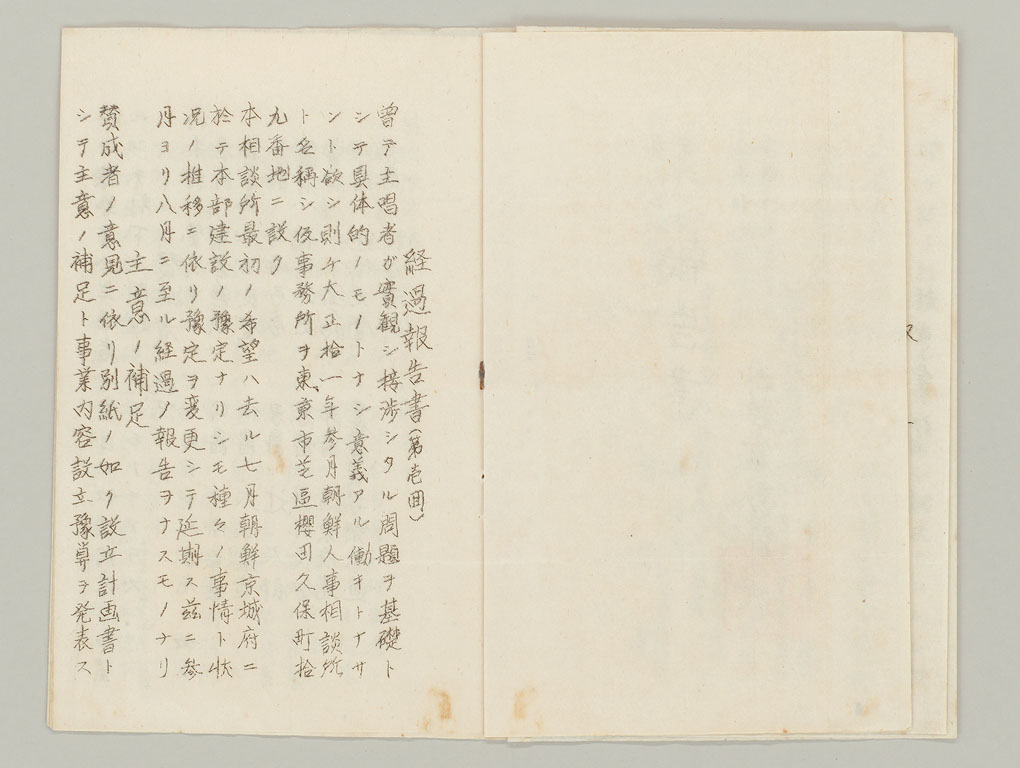 経過報告書(第壱回)
曽テ主唱者ガ實観シ接渉シタル問題ヲ基礎ト
シテ具体的ノモノトナシ意義アル働キトナサ
ント欲シ則チ大正拾一年参月朝鮮人事相談所
ト名稱シ仮事務所ヲ東京市芝區櫻田久保町拾
九番地ニ設ク
本相談所最初ノ希望ハ去ル七月朝鮮京城府ニ
於テ本部建設ノ豫定ナリシモ種々ノ事情ト状
況ノ推移ニ依リ豫定ヲ変更シテ延期ス茲ニ参
月ヨリ八月ニ至ル経過ノ報告ヲナスモノナリ
主意ノ補足
賛成者ノ意見ニ依リ別紙ノ如ク設立計画書ト
シテ主意ノ補足ト事業内容設立豫算ヲ発表ス